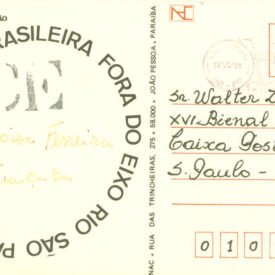 ÃO
BRASILEIRA FORA DO EIXO RIO SÃO PA
CE
Ferreira
NAC • RUA DAS TRINCHEIRAS, 275 • 58.000 • JOÃO PESSOA, PARAÍBA
Sr. Walter Z
XVI Bienal
Caixa Post
S. Paulo -
0 1 0